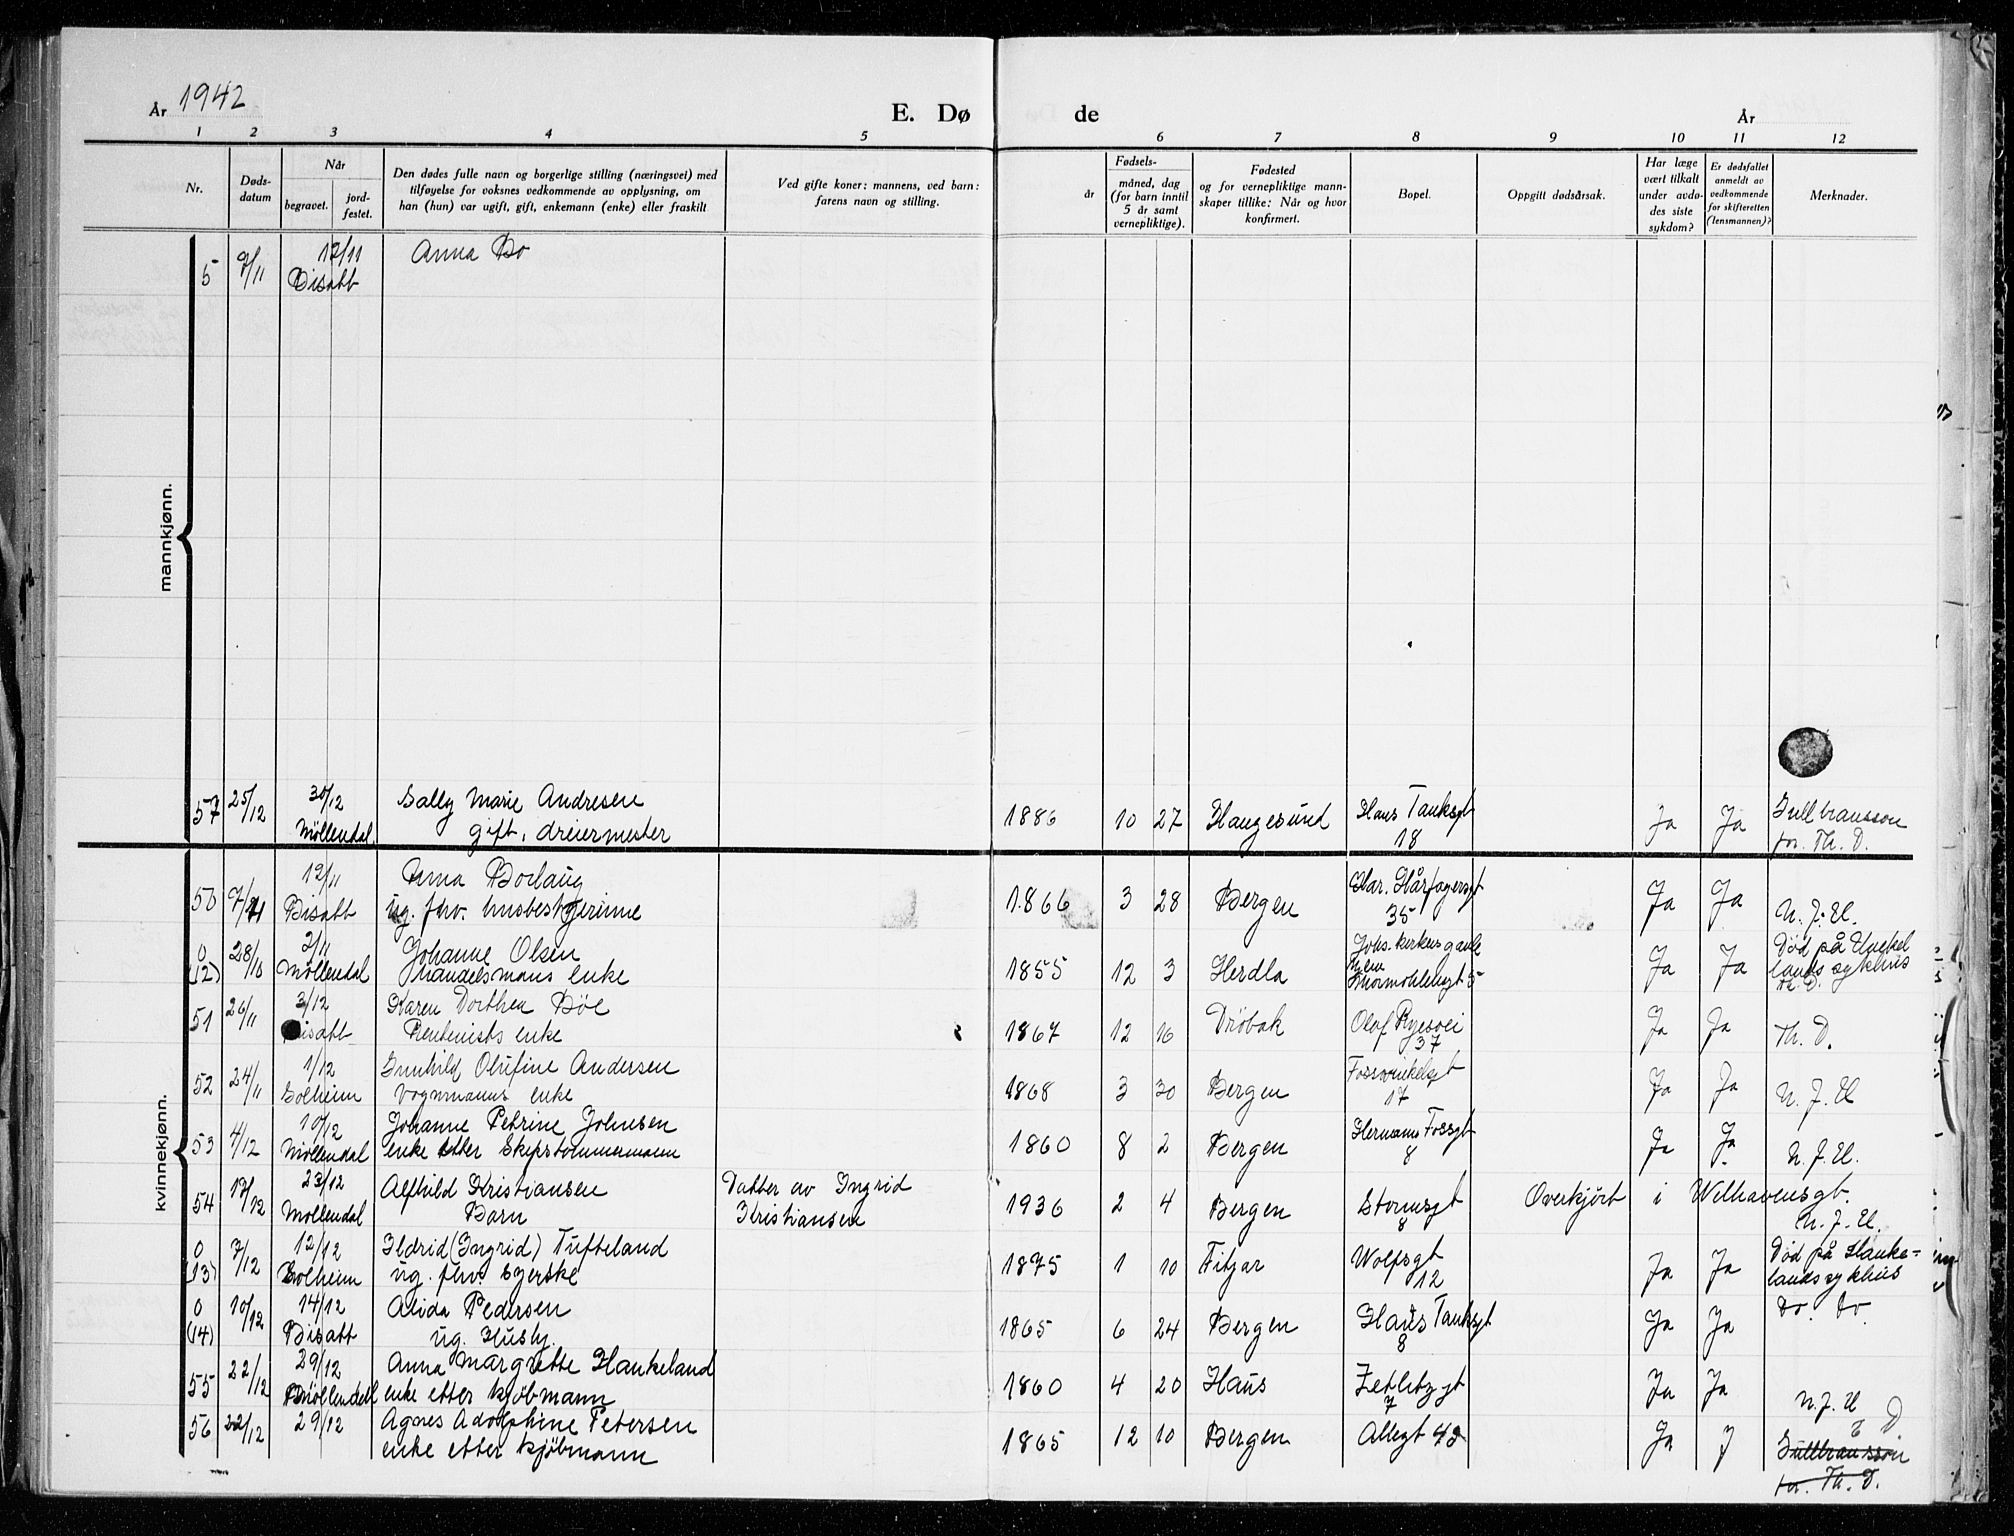 År 1942
E. Dø de
År
1 2 3 4 5 6 7 8 9 10 11 12
Nr.
Døds-
datum
Når
begravet.
jord-
festet.
Den dødes fulle navn og borgerlige stilling (næringsvei) med
tilføyelse for voksnes vedkommende av opplysning, om
han (hun) var ugift, gift, enkemann (enke) eller fraskilt
Ved gifte koner: mannens, ved barn:
farens navn og stilling.
Fødsels-
år
måned, dag
(for barn inntil
5 år samt
vernepliktige).
Fødested
og for vernepliktige mann-
skaper tillike: Når og hvor
konfirmert.
Bopel.
Oppgitt dødsårsak.
Har læge
vært tilkalt
under avdø-
des siste
sykdom?
Er dødsfallet
anmeldt av
vedkommende
for skifteretten
(lensmannen)?
Merknader.
mannkjønn.
5 7/11 12/11 Anna Bo
Bisatt
57 25/12 30/12 Sally Marie Andresen 1886 10 27 Haugesund Hans Tanksgt Ja Ja Gullbransson
Möllendal. gift, dreiermester 18 for. Th. D.
kvinnekjønn.
50 7/11 12/11 Anna Borlaug 1866 3 28 Bergen Har. Hårfagersgt Ja Ja
Bisatt ug. fhv. husbestyrerinne 35 N. J. El.
0 28/10 2/11 Johanne Olsen 1855 12 3 Herdla Johs. kirkens gamle Ja Ja Død på Haukel
(12) Möllendal handelsmans enke hjem lands sykhus
Thormøhlensgt 5 Th. D.
51 26/11 3/12 Karen Dorthea Böe 1867 12 16 Dröbak Olaf Ryesvei Ja Ja
Bisatt Rentenists enke 37 Th. D.
52 24/11 1/12 Gunhild Olufine Andersen 1868 3 30 Bergen Fosswinkelsgt Ja Ja
Solheim vognmanns enke 17 N. J. El
53 4/12 10/12 Johanne Petrine Johnsen 1860 8 2 Bergen Hermann Fossgt Ja Ja.
Möllendal enke etter Skipstömmermann 8 N. J. El.
54 17/12 23/12 Alfhild Kristiansen Datter av Ingrid 1936 2 4 Bergen Stormsgt Overkjört i Welhavensgt.
Möllendal Barn Kristiansen 8 N. J. El.
0 7/12 12/12 Ildrid (Ingrid) Tufteland 1875 1 10 Fitjar Wolfsgt Ja Ja Död på Hauke-
(13) Solheim ug. fhv. syerske 12 lands sykhus
0 10/12 14/12 Alida Pedersen 1865 6 24 Bergen Hans Tanksgt Ja Ja Do. Do.
(14) Bisatt ug. Husby. 8
55 22/12 29/12 Anna Margrette Haukeland 1860 4 20 Haus Zetlitzgt Ja Ja
Möllendal enke etter kjöbmann 7 N. J. El
56 22/12 29/12 Agnes Adolphine Petersen 1865 12 10 Bergen Allegt 42 Ja J E D
enke etter kjöbmann Gullbransson
for. Th. D.